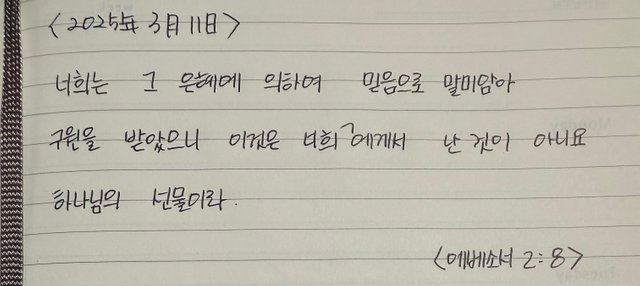 <2025年 3月 11日>
너희는 그 은혜에 의하여 믿음으로 말미암아
구원을 받았으니 이것은 너희에게서 난 것이 아니요
하나님의 선물이라.
<에베소서 2:8>